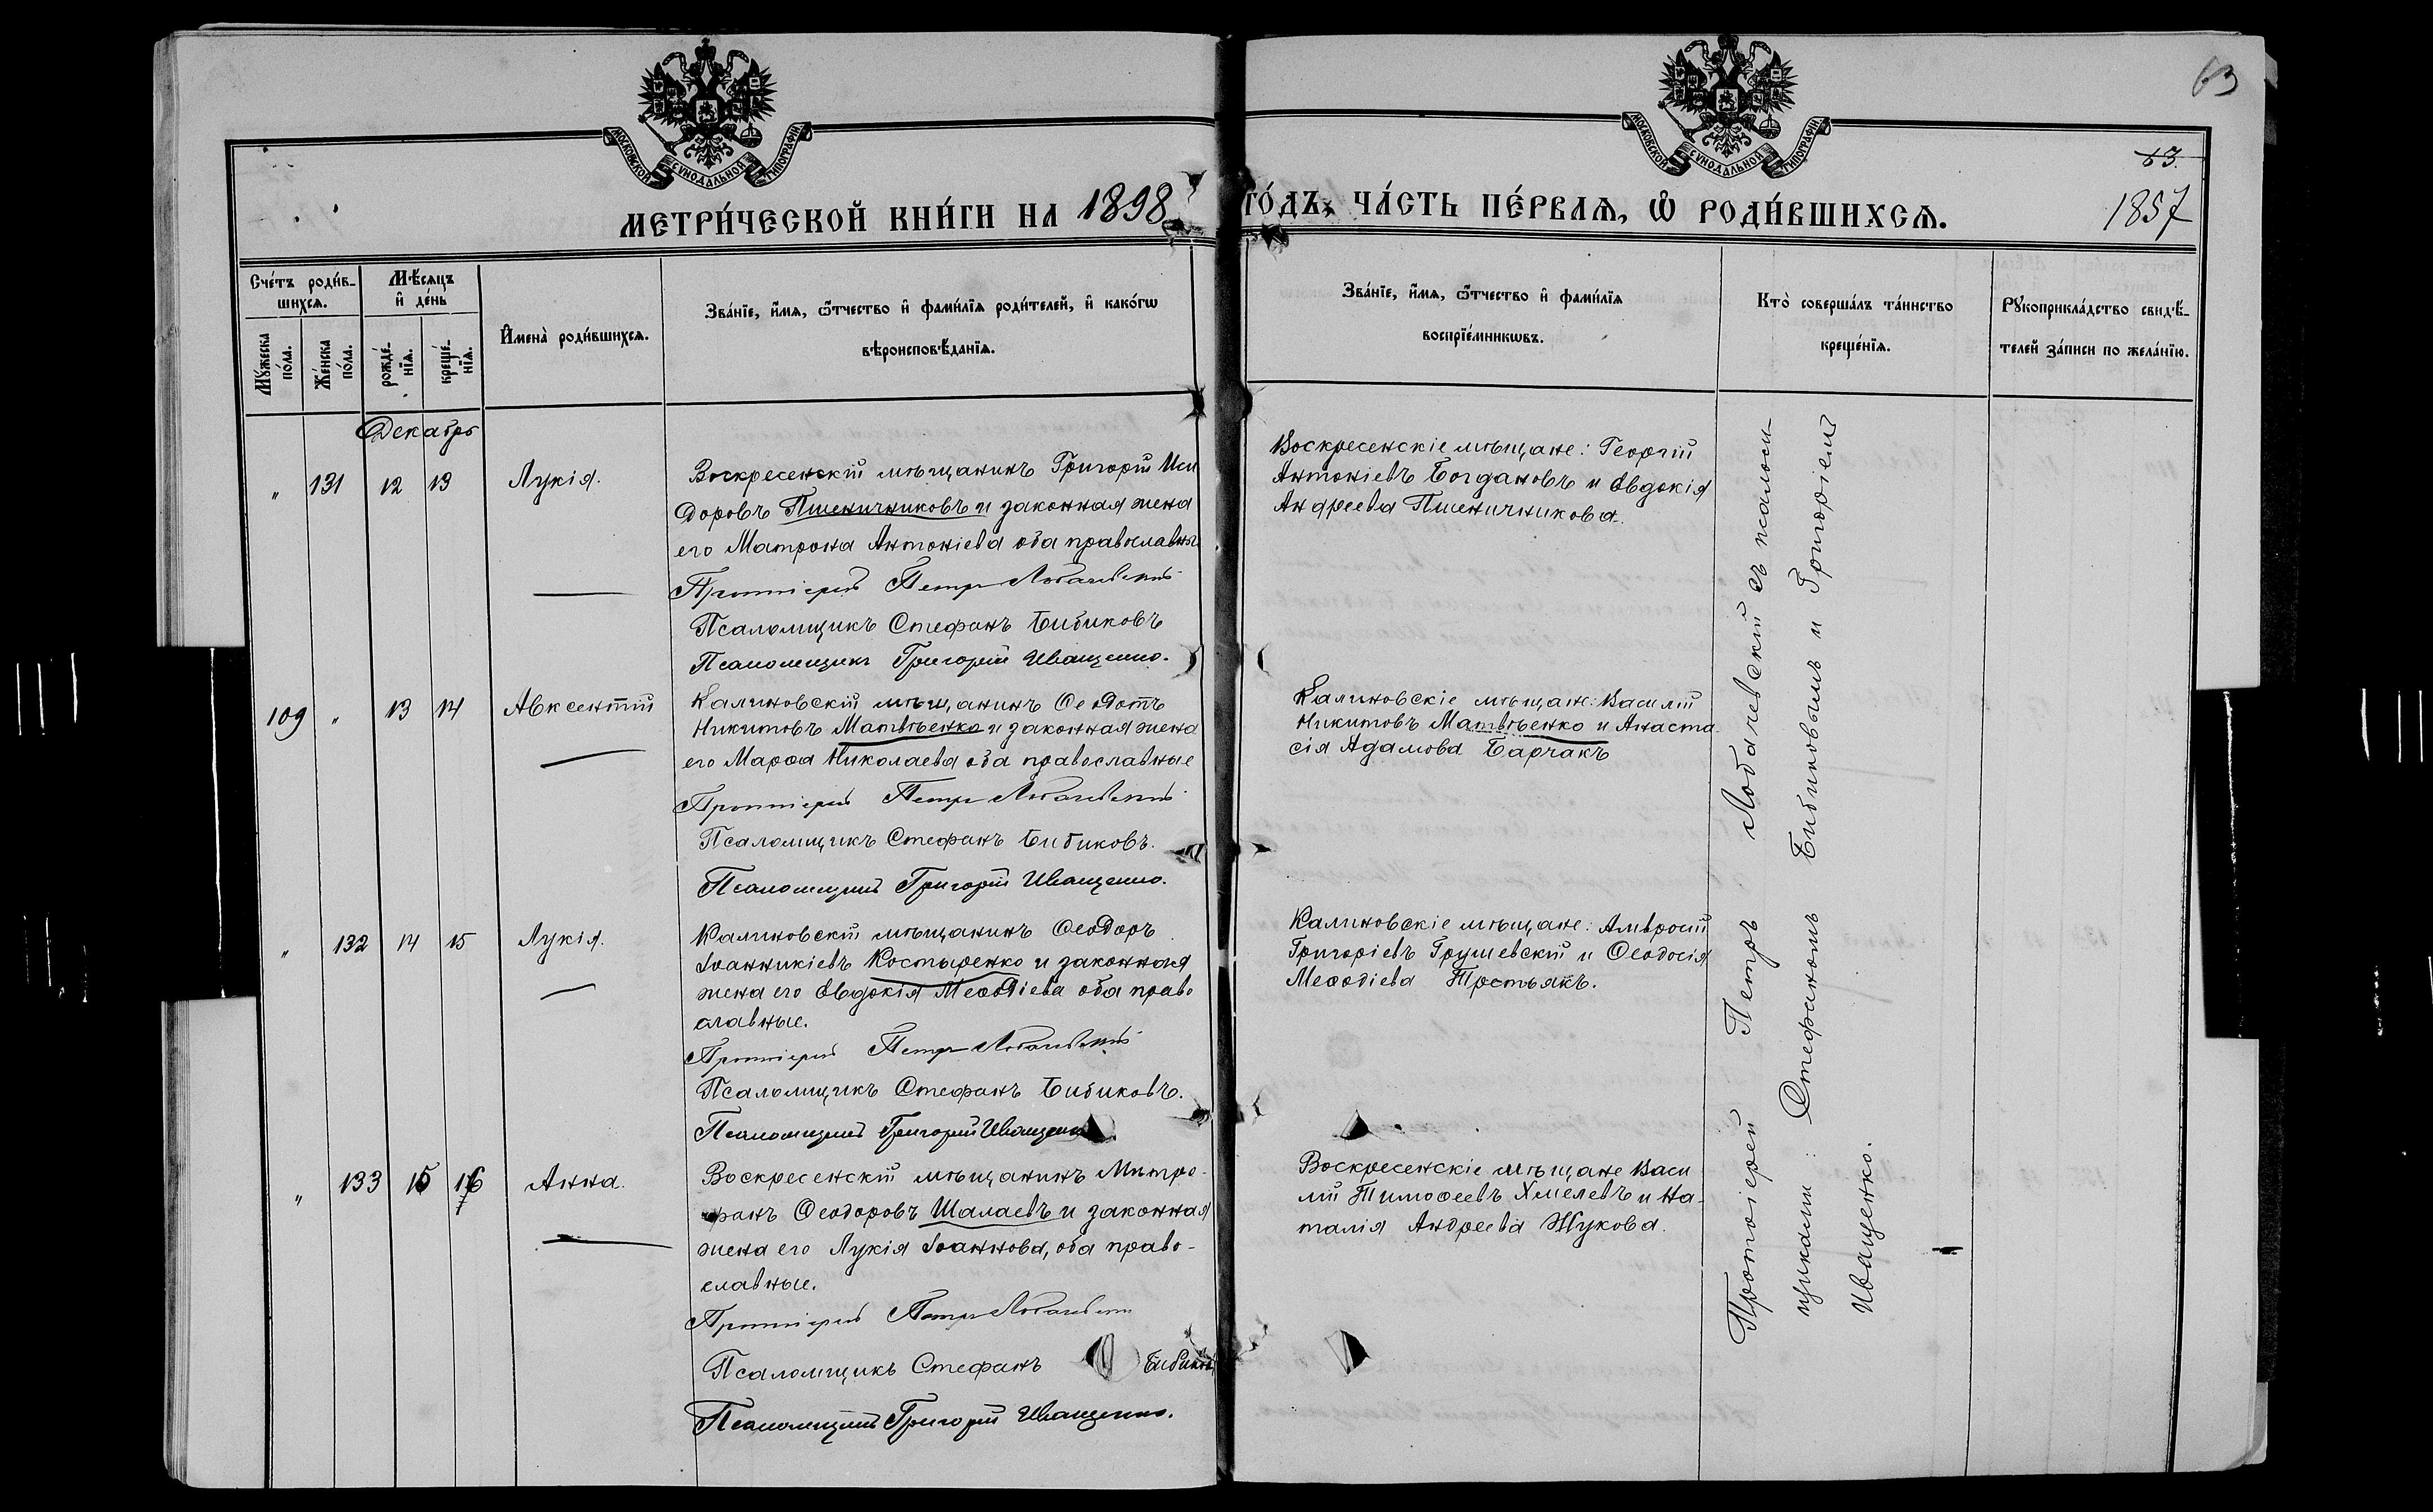 63
МОСКОВСКОЙ СѴНОДАЛЬНОЙ ТИПОГРАФІИ
МОСКОВСКОЙ СѴНОДАЛЬНОЙ ТИПОГРАФІИ
63.
МЕТРИ́ЧЕСКОЙ КНИ́ГИ НА 1898 ГО́ДЪ, ЧА́СТЬ ПЕ́РВАЯ, Ѿ РОДИ́ВШИХСЯ.
1857
Сче́тъ роди́в-
шихся.
Му́жеска
по́ла.
Же́нска
по́ла.
Мѣ́сяцъ
и де́нь
рожде́-
нїя.
креще́-
нїя.
Имена̀ роди́вшихся.
Зва́нїе, и́мя, ѻ́тчество и фами́лїя роди́телей, и како́гѡ
вѣроисповѣ́данїя.
Зва́нїе, и́мя, ѻ́тчество и фами́лїя
воспрїе́мникѡвъ.
Кто̀ соверша́лъ та́инство
креще́нїя.
Рꙋкоприкла́дство свидѣ́-
телей за́писи по жела́нїю.
Декабрь
" 131 12 13 Лукія.
Воскресенскій мѣщанинъ Григорій Иси
доровъ Пшеничниковъ и законная жена
его Матрона Антоніева оба православные
Протоіерей Петръ Лобачевскій
Псаломщикъ Стефанъ Бибиковъ
Псаломщикъ Григорій Иващенко.
Воскресенскіе мѣщане: Георгій
Антоніевъ Богдановъ и Евдокія
Андреева Пшеничникова.
109 " 13 14 Авксентій
Калиновскій мѣщанинъ Ѳеодотъ
Никитовъ Матвѣенко и законная жена
его Марѳа Николаева оба православные
Протоіерей Петръ Лобачевскій
Псаломщикъ Стефанъ Бибиковъ.
Псаломщикъ Григорій Иващенко.
Калиновскіе мѣщане: Василій
Никитовъ Матвѣенко и Анаста
сія Адамова Барчакъ
" 132 14 15 Лукія.
Калиновскій мѣщанинъ Ѳеодоръ
Іоанникіевъ Костыренко и законная
жена его Евдокія Меѳодіева оба право
славные.
Протоіерей Петръ Лобачевскій
Псаломщикъ Стефанъ Бибиковъ.
Псаломщикъ Григорій Иващенко
Калиновскіе мѣщане: Амвросій
Григоріевъ Грушевскій и Ѳеодосія
Меѳодіева Простьякъ.
" 133 15 16 Анна.
Воскресенскій мѣщанинъ Митро-
фанъ Ѳеодоровъ Шалаевъ и законная
жена его Лукія Іоаннова, оба право-
славные.
Протоіерей Петръ Лобачевскій
Псаломщикъ Стефанъ Бибиковъ
Псаломщикъ Григорій Иващенко.
Воскресенскіе мѣщане Васи
лій Тимоѳеевъ Хмелевъ и На-
талія Андреева Жукова.
Протоіерей Петръ Лобачевскій съ псаломи-
щиками: Стефаномъ Бибиковымъ и Григоріемъ
Иващенко.